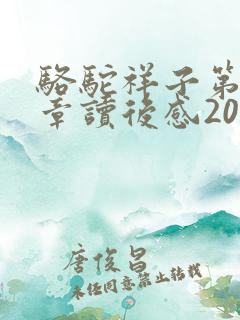 駱駝祥子第
章讀後感20
唐俊昌
未经同意禁止转载